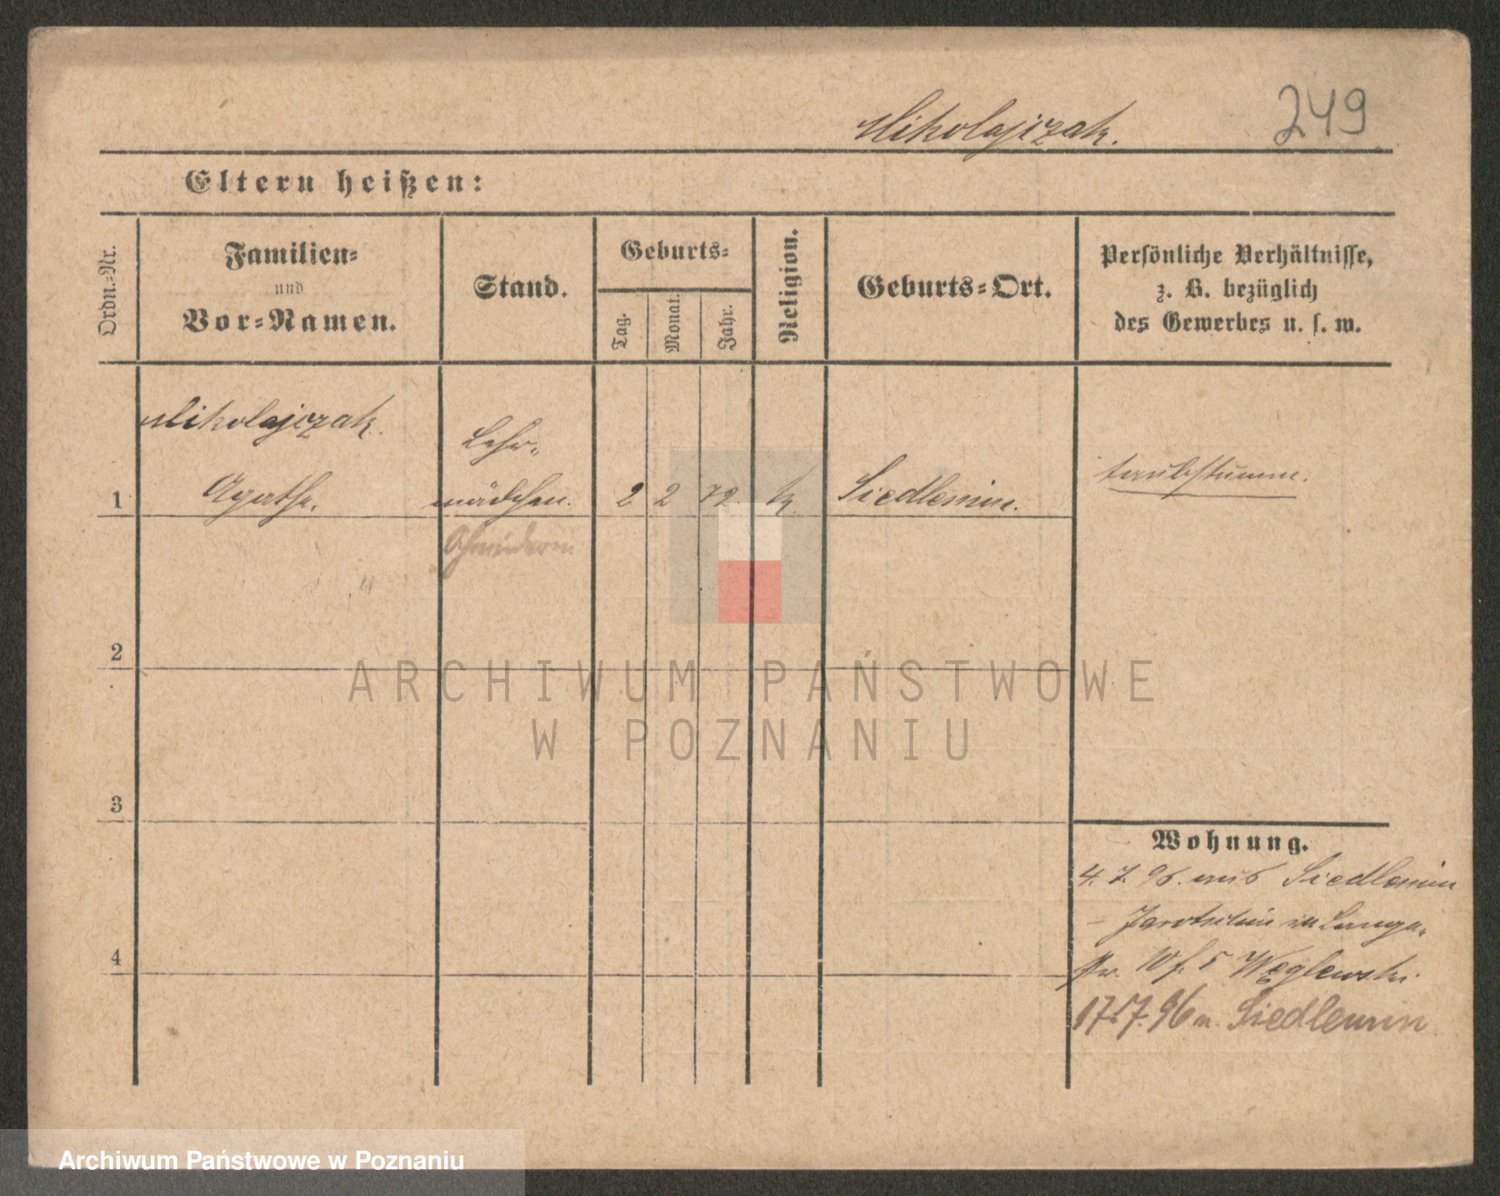 Mikolajczak.
249
Eltern heißen:
Ordn.-Nr.
Familien-
und
Vor-Namen.
Stand.
Geburts-
Tag.
Monat.
Jahr.
Religion.
Geburts-Ort.
Persönliche Verhältnisse,
z. B. bezüglich
des Gewerbes u. s. w.
Mikolajczak.
Agathe.
Lehr-
mädchen.
1
2 2 72 k Siedlemin.
taubstumm.
2
ARCHIWUM PAŃSTWOWE
W POZNANIU
3
Wohnung.
4. 7. 96. aus Siedlemin
- Jarotschin in Lange-
4
str. 5 Węglewski.
17.7. 96 n. Siedlemin
Archiwum Państwowe w Poznaniu